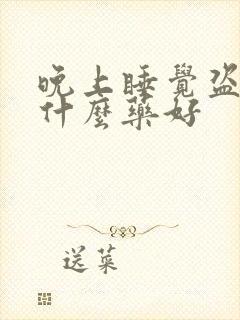 晚上睡覺盗
什麼藥好
送菜